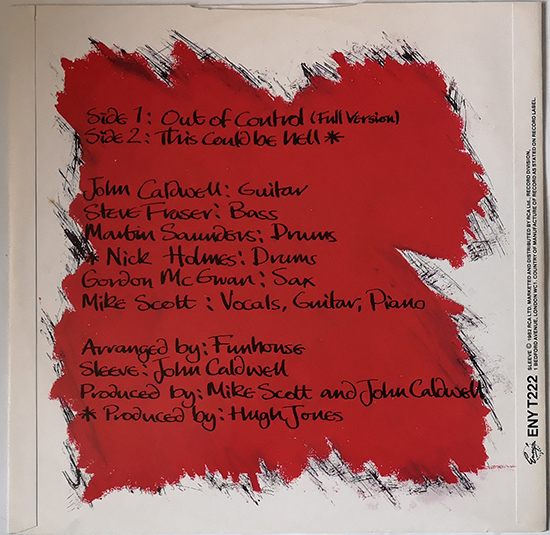 Side 1: Out of Control (Full Version)
Side 2: This Could be Hell *
John Caldwell: Guitar
Steve Fraser: Bass
Martin Saunders: Drums
* Nick Holmes: Drums
Gordon McGwan: Sax
Mike Scott: Vocals, Guitar, Piano
Arranged by: Funhouse
Sleeve: John Caldwell
Produced by: Mike Scott and John Caldwell
* Produced by: Hugh Jones
Ensign ENY T222
SLEEVE © 1982 RCA LTD. MARKETED AND DISTRIBUTED BY RCA Ltd., RECORD DIVISION,
1 BEDFORD AVENUE, LONDON WC1. COUNTRY OF MANUFACTURE OF RECORD AS STATED ON RECORD LABEL.